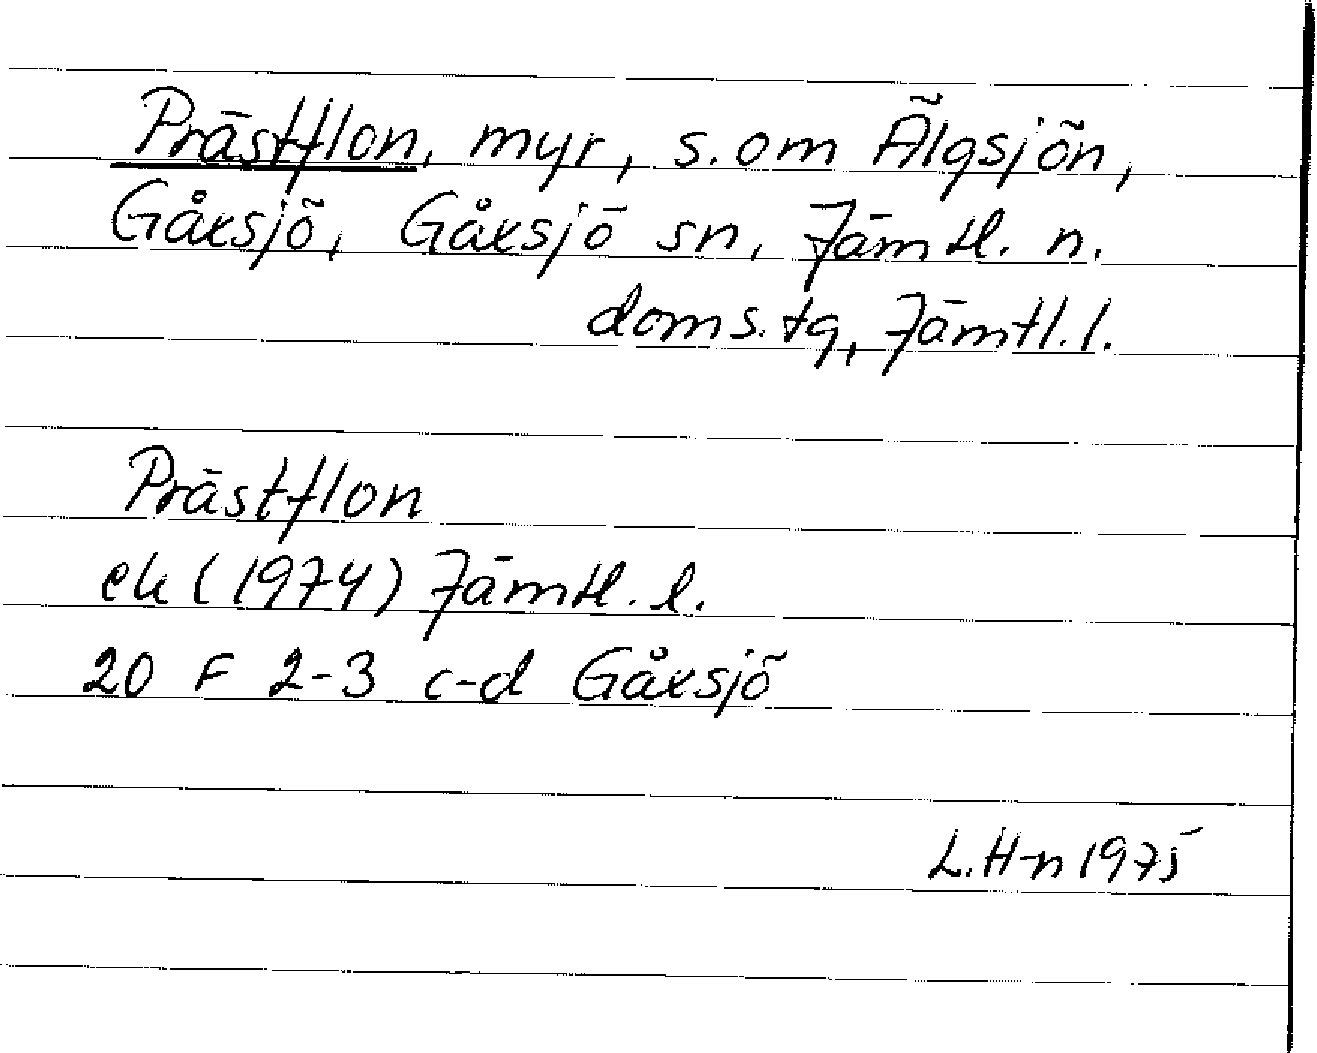 Prästflon, myr, s. om Älgsjön,
Gåxsjö, Gåxsjö sn, Jämtl. n.
doms. tg, Jämtl. l.
Prästflon
ek (1974) Jämtl. l.
20 F 2-3 c-d Gåxsjö
L. H-n 1975